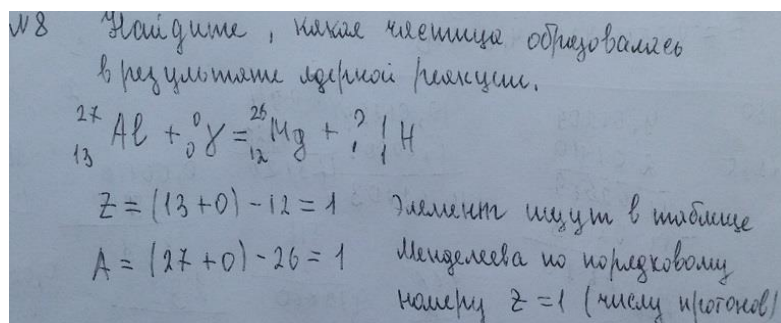 №8 Найдите, какая частица образовалась
в результате ядерной реакции.
²⁷₁₃Al + ⁰₀γ = ²⁶₁₂Mg + ? ¹₁H
Z = (13+0) - 12 = 1 Элемент ищут в таблице
A = (27+0) - 26 = 1 Менделеева по порядковому
номеру Z = 1 (числу протонов)